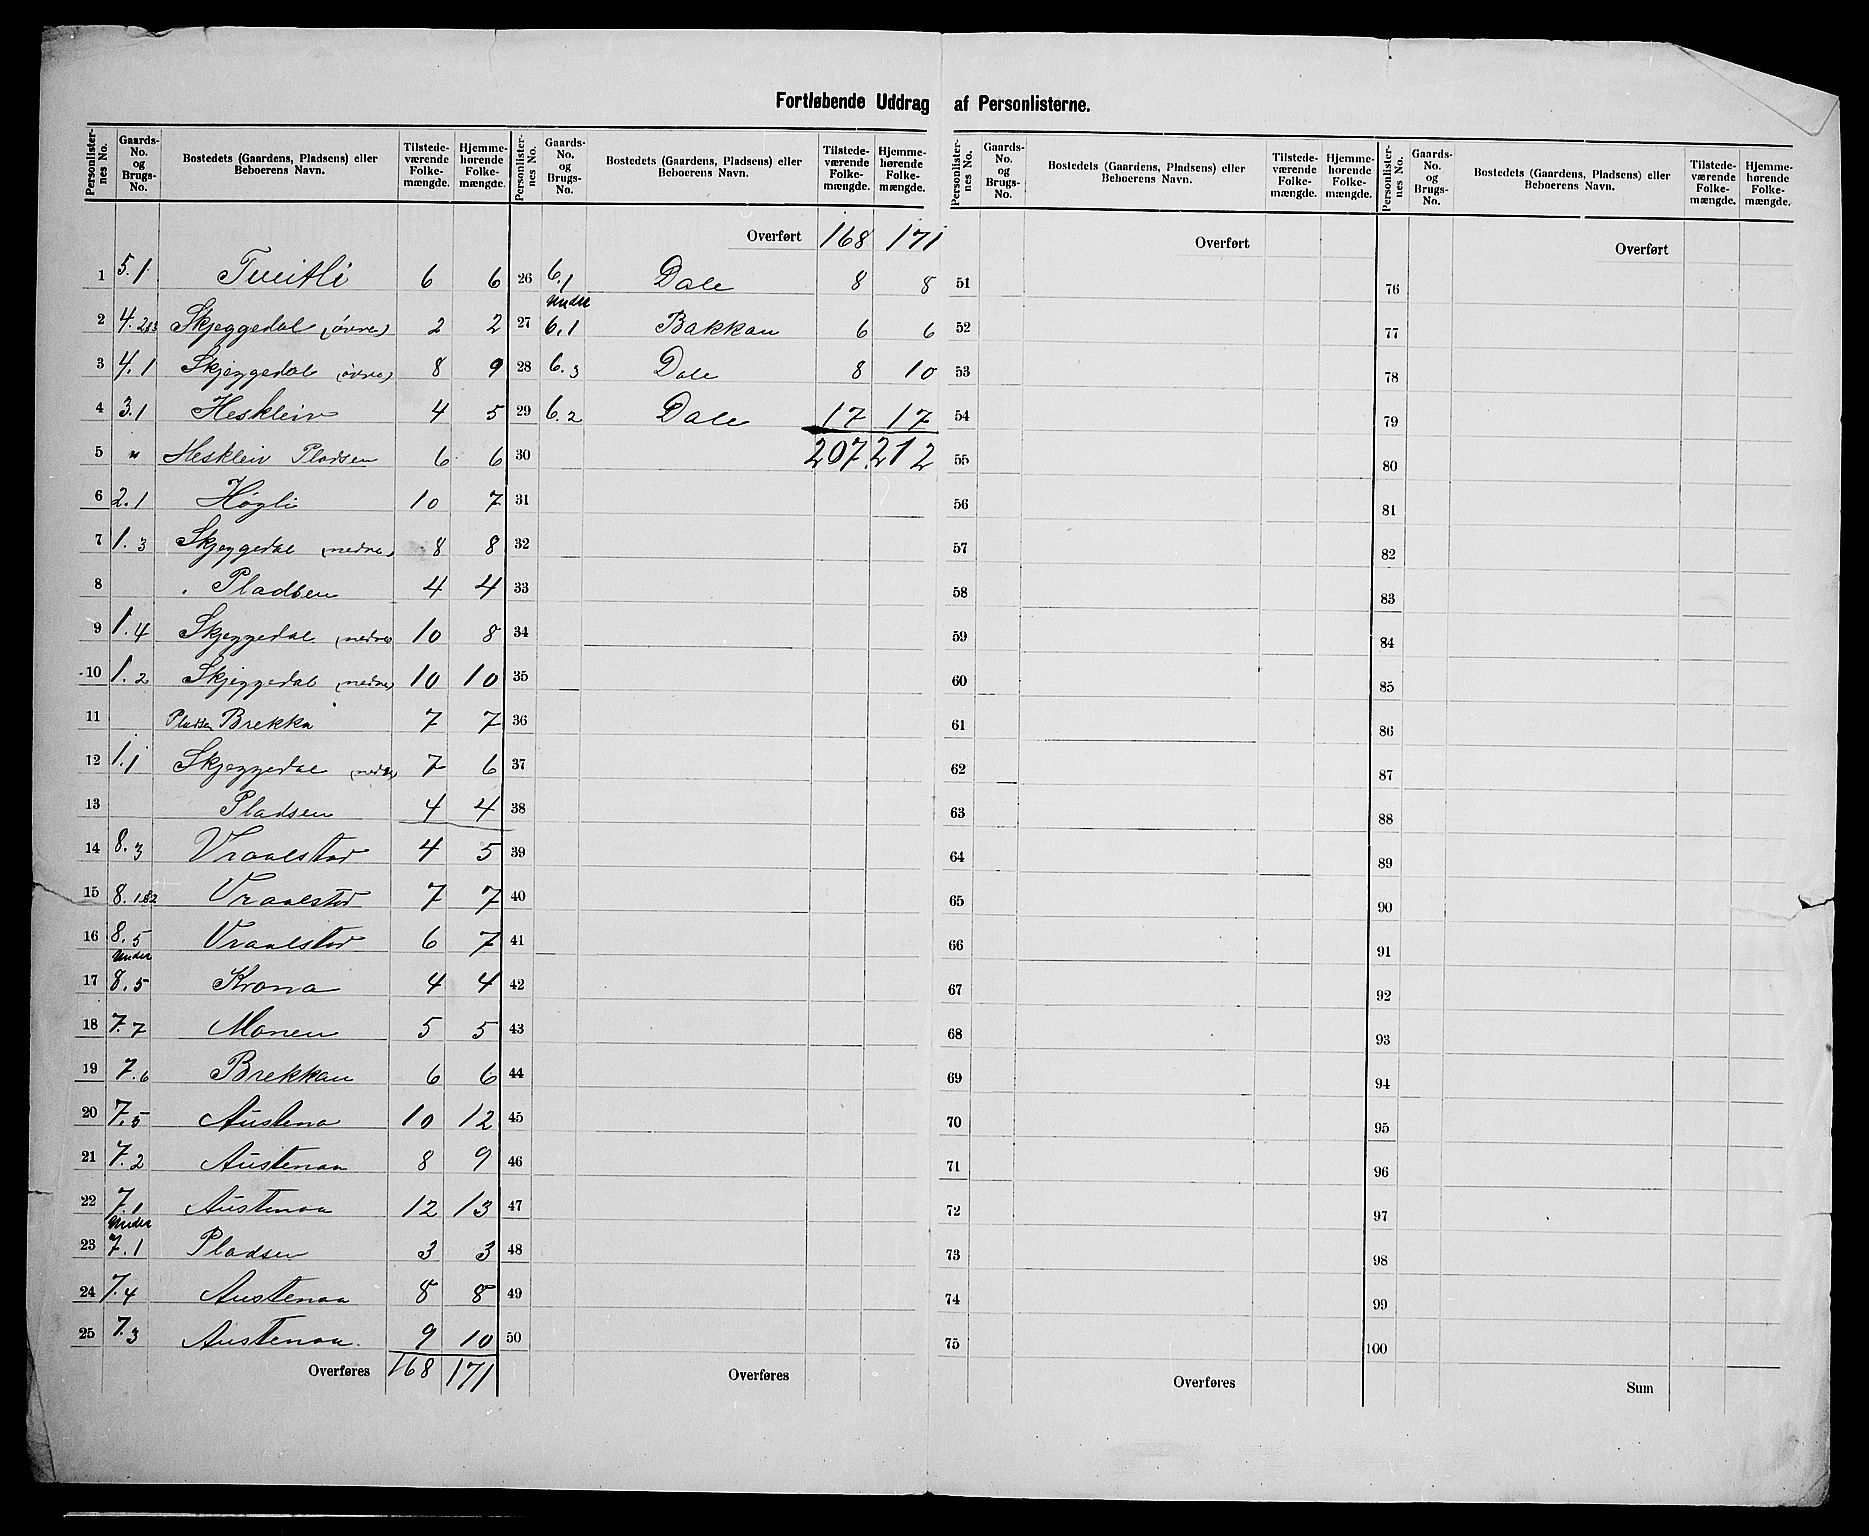 Fortløbende Uddrag af Personlisterne.
Personlister-nes No. | Gaards-No. og Brugs-No. | Bostedets (Gaardens, Pladsens) eller Beboerens Navn. | Tilstede-værende Folke-mængde. | Hjemme-hørende Folke-mængde.
1 5.1 Tveitli 6 6
2 4.2&3 Skjeggedal (øvre) 2 2
3 4.1 Skjeggedal (øvre) 8 9
4 3.1 Heskleiv 4 5
5 " Heskleiv Pladsen 6 6
6 2.1 Høgli 10 7
7 1.3 Skjeggedal (nedre) 8 8
8 " Pladsen 4 4
9 1.4 Skjeggedal (nedre) 10 8
10 1.2 Skjeggedal (nedre) 10 10
11 Pladsen Brekka 7 7
12 1.1 Skjeggedal (nedre) 7 6
13 Pladsen 4 4
14 8.3 Vraalstad 4 5
15 8.1&2 Vraalstad 7 7
16 8.5 Vraalstad 6 7
17 Under 8.5 Krona 4 4
18 7.7 Monen 5 5
19 7.6 Brekkan 6 6
20 7.5 Austena 10 12
21 7.2 Austenaa 8 9
22 7.1 Austenaa 12 13
23 Under 7.1 Pladsen 3 3
24 7.4 Austenaa 8 8
25 7.3 Austenaa. 9 10
Overføres 168 171
Personlister-nes No. | Gaards-No. og Brugs-No. | Bostedets (Gaardens, Pladsens) eller Beboerens Navn. | Tilstede-værende Folke-mængde. | Hjemme-hørende Folke-mængde.
Overført 168 171
26 6.1 Dale 8 8
27 Under 6.1 Bakkan 6 6
28 6.3 Dale 8 10
29 6.2 Dale 17 17
30 207. 212
31
32
33
34
35
36
37
38
39
40
41
42
43
44
45
46
47
48
49
50
Overføres
Personlister-nes No. | Gaards-No. og Brugs-No. | Bostedets (Gaardens, Pladsens) eller Beboerens Navn. | Tilstede-værende Folke-mængde. | Hjemme-hørende Folke-mængde.
Overført
51
52
53
54
55
56
57
58
59
60
61
62
63
64
65
66
67
68
69
70
71
72
73
74
75
Overføres
Personlister-nes No. | Gaards-No. og Brugs-No. | Bostedets (Gaardens, Pladsens) eller Beboerens Navn. | Tilstede-værende Folke-mængde. | Hjemme-hørende Folke-mængde.
Overført
76
77
78
79
80
81
82
83
84
85
86
87
88
89
90
91
92
93
94
95
96
97
98
99
100
Sum